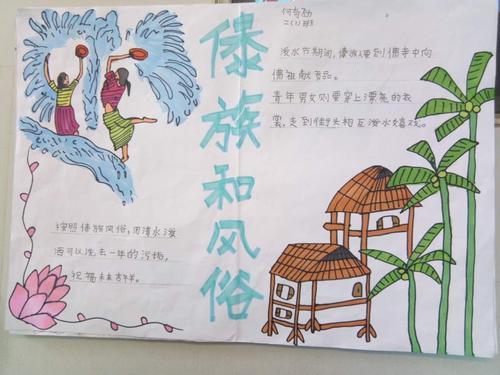 傣族和风俗
二(1)班
泼水节期间,傣族人要到佛寺中向
佛祖献贡品。
青年男女则要穿上漂亮的衣
裳,走到街头相互泼水嬉戏。
按照傣族风俗,用清水泼
洒可以洗去一年的污垢,
祝福未来吉祥。